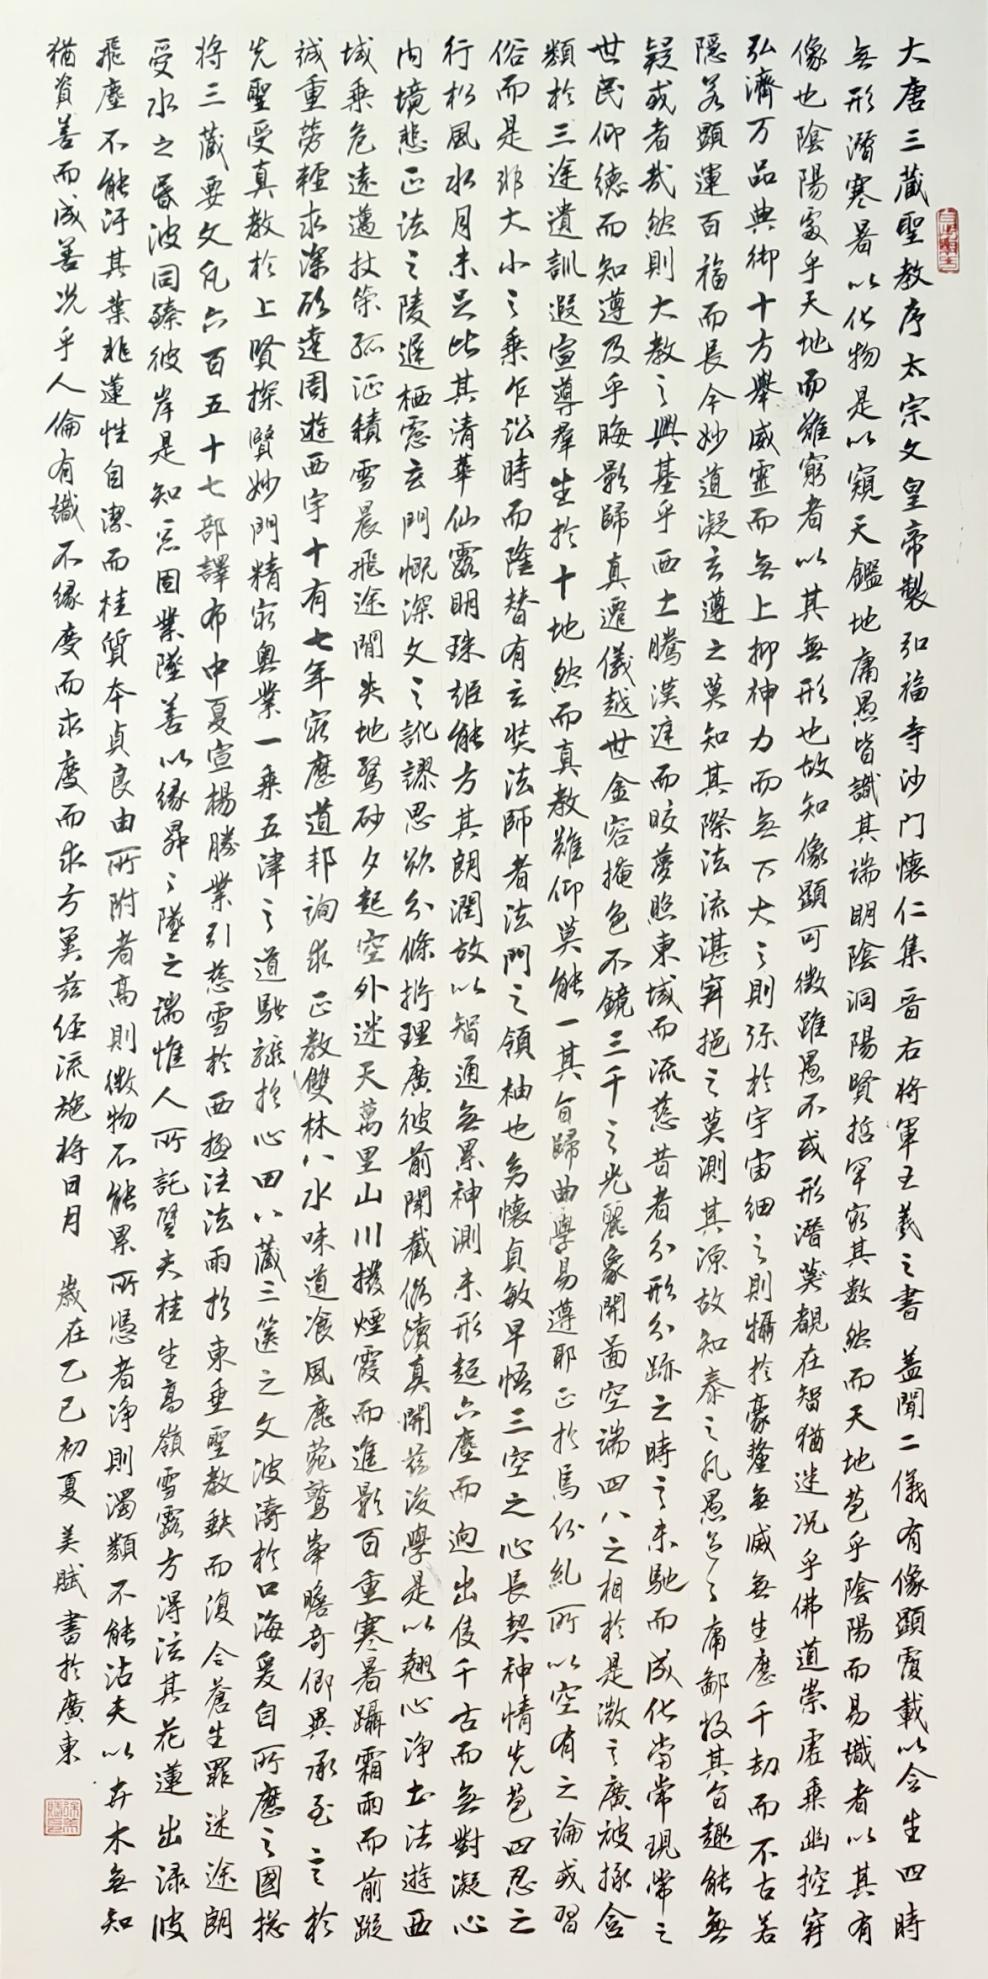 大唐三藏聖教序太宗文皇帝製弘福寺沙門懷仁集晋右將軍王羲之書 蓋聞二儀有像顯覆載以含生四時
無形潛寒暑以化物是以窺天鑑地庸愚皆識其端明陰洞陽賢哲罕窮其數然而天地苞乎陰陽而易識者以其有
像也陰陽處乎天地而難窮者以其無形也故知像顯可徵雖愚不惑形潛莫覩在智猶迷况乎佛道崇虛乘幽控寂
弘濟万品典御十方舉威靈而無上抑神力而無下大之則弥於宇宙細之則攝於豪釐無滅無生歷千劫而不古若
隱若顯運百福而長今妙道凝玄遵之莫知其際法流湛寂挹之莫測其源故知蠢蠢凡愚區區庸鄙投其旨趣能無
疑或者哉然則大教之興基乎西土騰漢庭而晈夢照東域而流慈昔者分形分跡之時言未馳而成化當常現常之
世民仰德而知遵及乎晦影歸真遷儀越世金容掩色不鏡三千之光麗象開圖空端四八之相於是微言廣被拯含
類於三途遺訓遐宣導羣生於十地然而真教難仰莫能一其旨歸曲學易遵耶正於焉紛糺所以空有之論或習
俗而是非大小之乘乍訟時而隆替有玄奘法師者法門之領袖也幼懷貞敏早悟三空之心長契神情先苞四忍之
行松風水月未足比其清華仙露明珠詎能方其朗潤故以智通無累神測未形超六塵而迥出隻千古而無對凝心
内境悲正法之陵遲栖慮玄門慨深文之訛謬思欲分條析理廣彼前聞截偽續真開兹後學是以翹心淨土法遊西
域乘危遠邁杖策孤征積雪晨飛途閒失地驚砂夕起空外迷天萬里山川撥煙霞而進影百重寒暑躡霜雨而前蹤
誠重勞輕求深願達周遊西宇十有七年窮歷道邦詢求正教雙林八水味道飡風鹿菀鷲峯瞻奇仰異承至言於
先聖受真教於上賢探賾妙門精窮奥業一乘五津之道馳驟於心田八藏三篋之文波濤於口海爰自所歷之國揔
將三藏要文凡六百五十七部譯布中夏宣揚勝業引慈雪於西極注法雨於東垂聖教缺而復全蒼生罪迷途朗
受水之昏波同臻彼岸是知惡因業墜善以緣昇昇墜之瑞惟人所託譬夫桂生高嶺雪露方得泫其花蓮出渌波
飛塵不能汙其葉非蓮性自潔而桂質本貞良由所附者高則微物不能累所憑者淨則濁類不能沾夫以卉木無知
猶資善而成善况乎人倫有識不緣慶而求慶而求方冀兹經流施將日月 歲在乙巳初夏美賦書於廣東